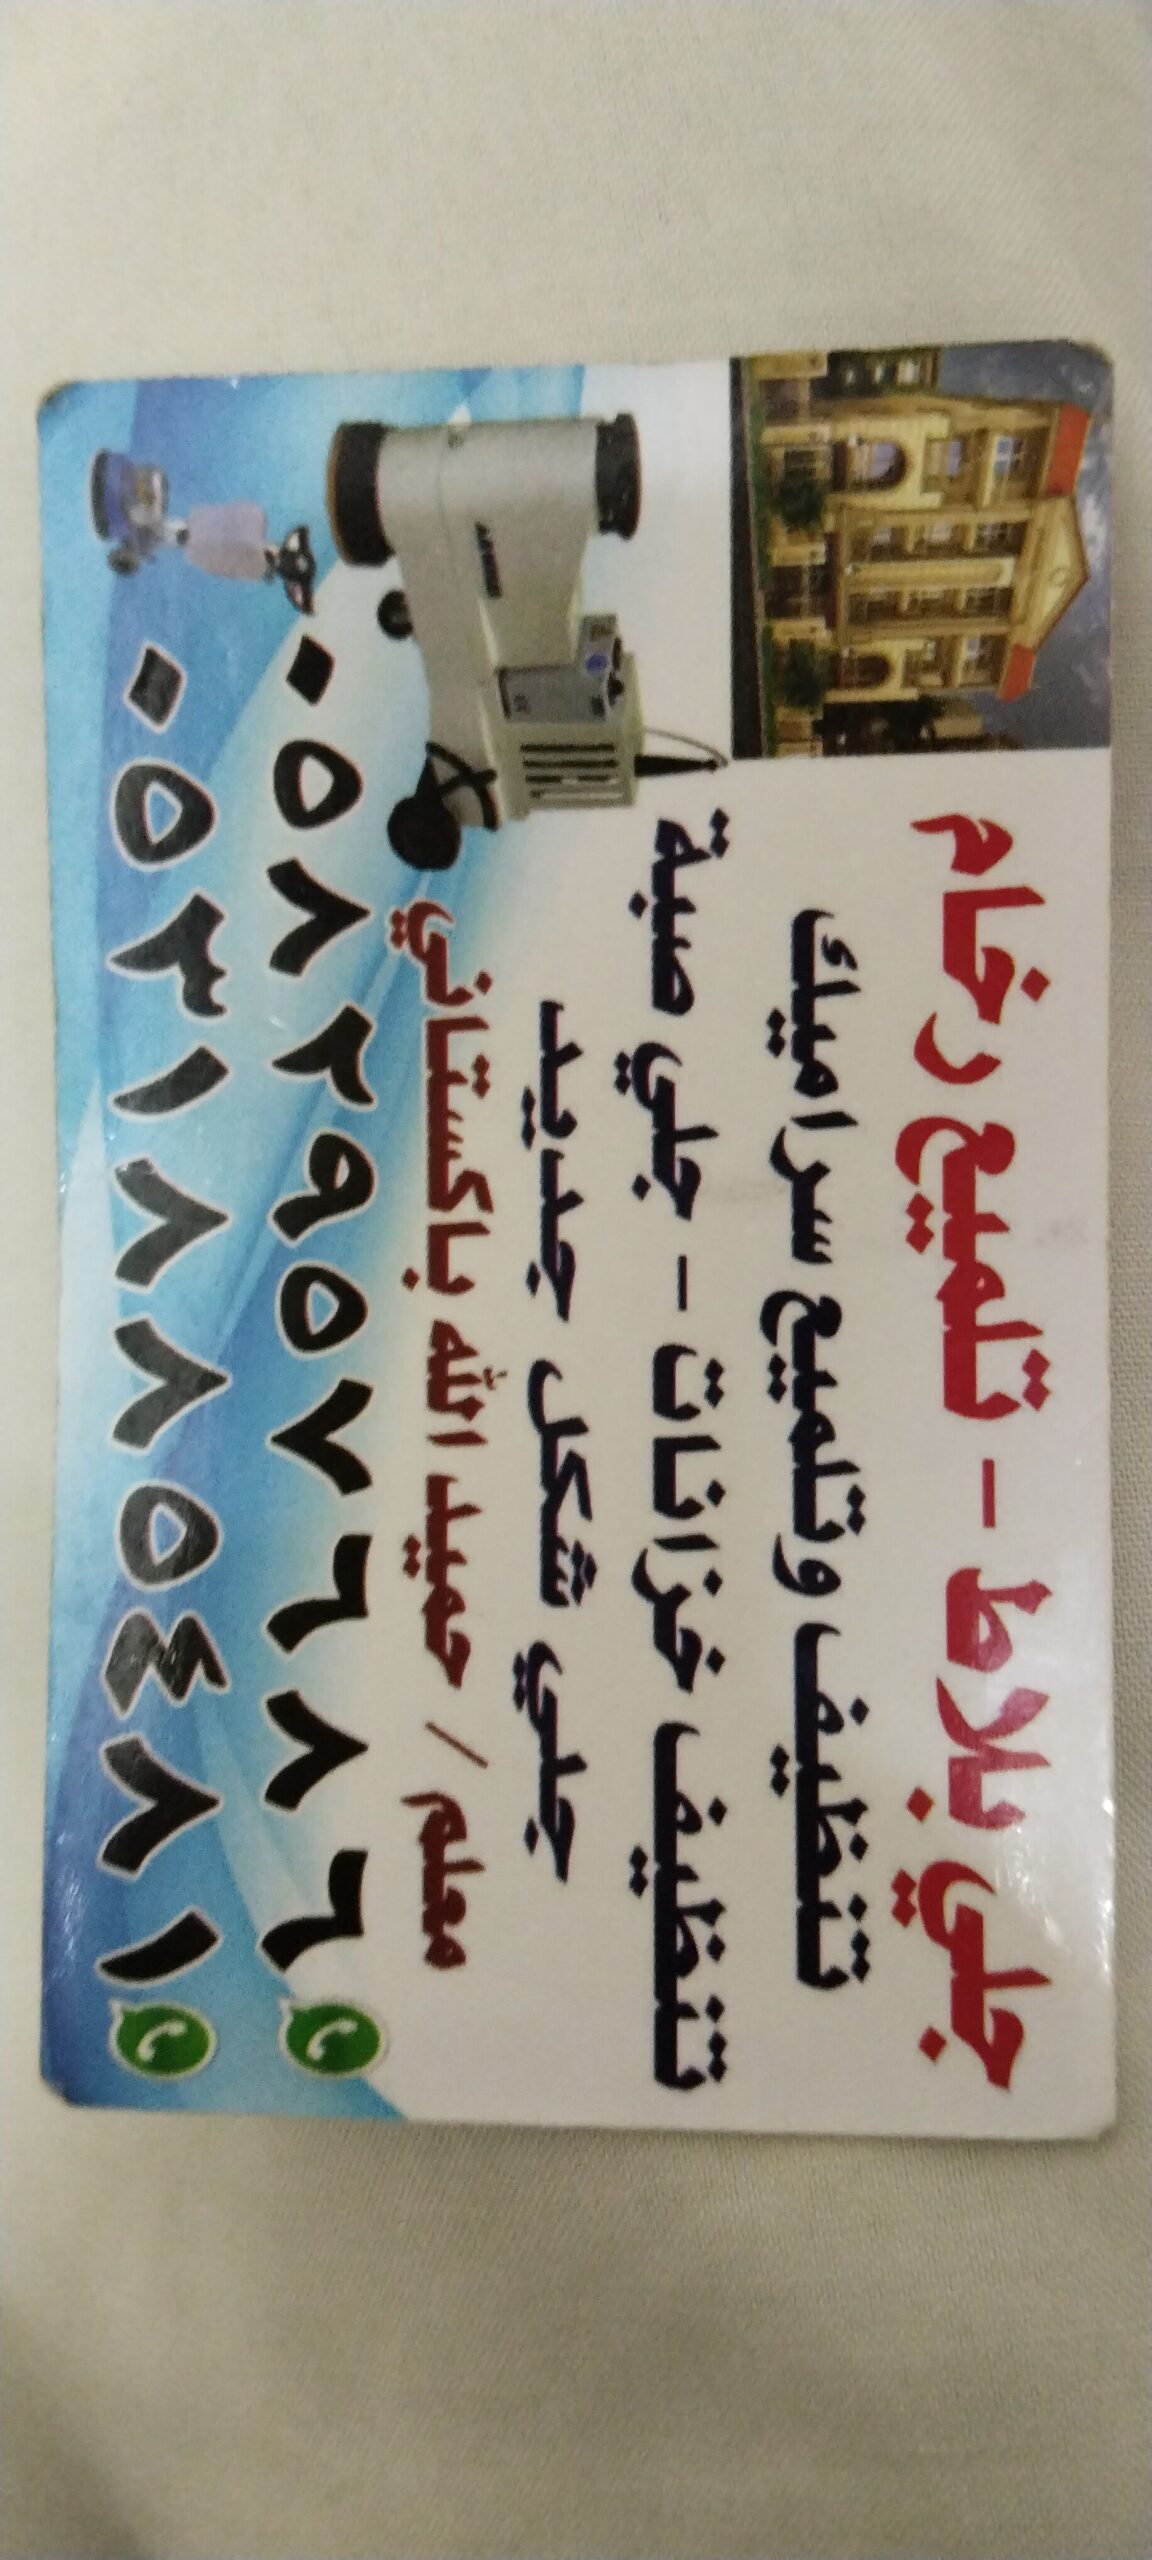 جلي بلاط - تلميع رخام
تنظيف وتلميع سراميك
تنظيف خزانات - جلي صبة
جلي شكل جديد
معلم / حميد الله باكستاني
٠٥٨٢٩٥٧٦٨٦
٠٥٣١٨٨٥٤٨١